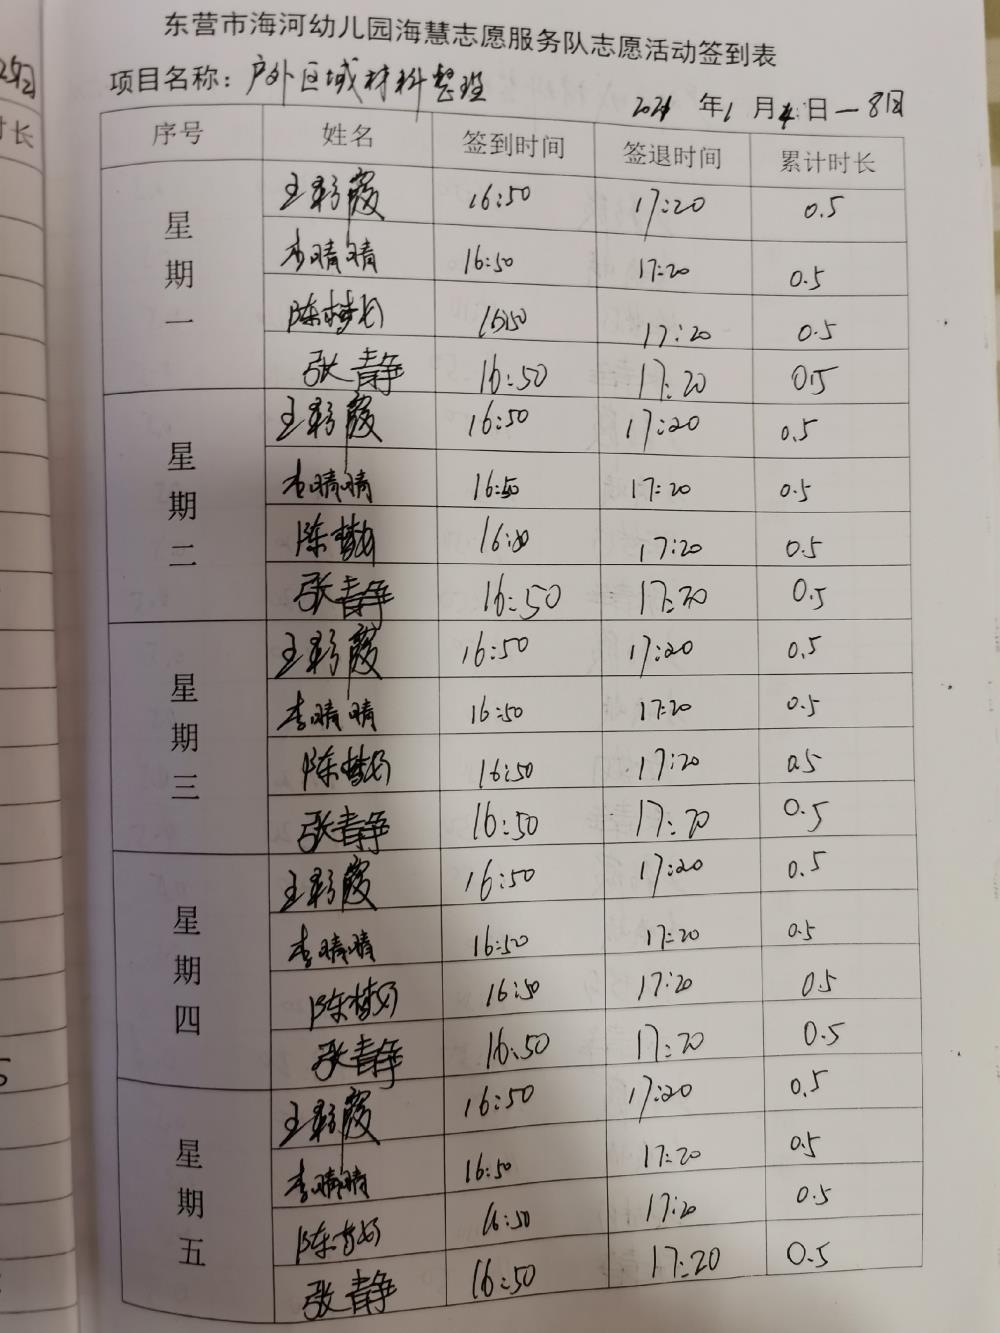 东营市海河幼儿园海慧志愿服务队志愿活动签到表
项目名称：户外区域材料整理
2021 年1月4日—8日
序号 姓名 签到时间 签退时间 累计时长
星期一
王彩霞 16:50 17:20 0.5
李晴晴 16:50 17:20 0.5
陈梦 16:50 17:20 0.5
张青静 16:50 17:20 0.5
星期二
王彩霞 16:50 17:20 0.5
李晴晴 16:50 17:20 0.5
陈梦 17:20 0.5
张青静 16:50 17:20 0.5
星期三
王彩霞 16:50 17:20 0.5
李晴晴 16:50 17:20 0.5
陈梦 16:50 17:20 0.5
张青静 16:50 17:20 0.5
星期四
王彩霞 16:50 17:20 0.5
李晴晴 16:50 17:20 0.5
陈梦 16:50 17:20 0.5
张青静 16:50 17:20 0.5
星期五
王彩霞 16:50 17:20 0.5
李晴晴 16:50 17:20 0.5
陈梦 16:50 17:20 0.5
张青静 16:50 17:20 0.5